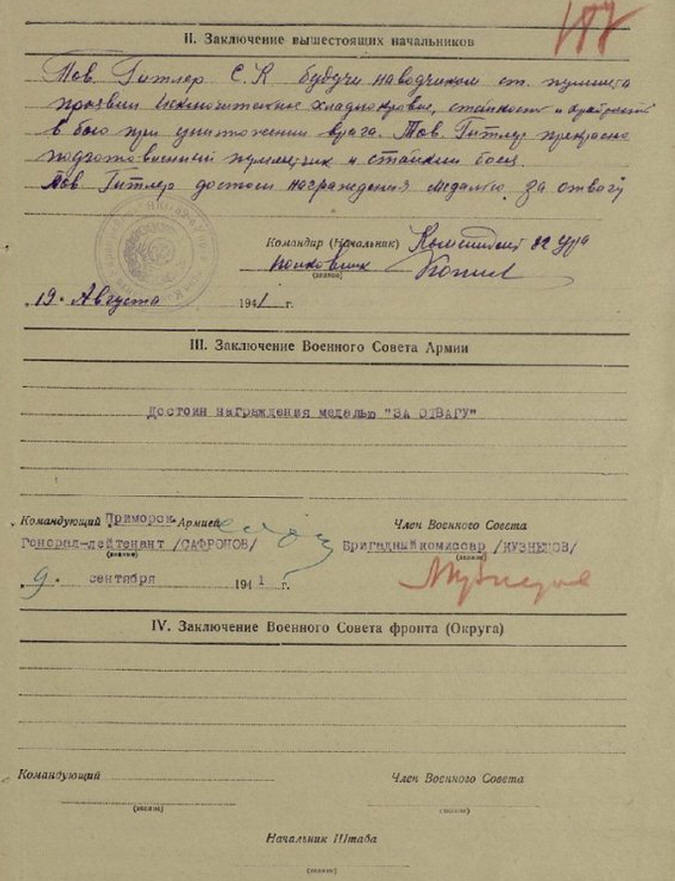 187
II. Заключение вышестоящих начальников
Тов. Гитлер С.К будучи наводчиком ст. пулимета
проявил исключительное хладнокровие, стойкость и храбрость
в бою при уничтожении врага. Тов. Гитлер прекрасно
подготовленный пулеметчик и стойкий боец.
Тов. Гитлер достоин награждения медалью за отвагу
Командир (Начальник) Комендант 82 Ура
полковник
(звание)
19. Августа 1941 г.
III. Заключение Военного Совета Армии
Достоин награждения медалью "ЗА ОТВАГУ"
Командующий Приморск. Армией
Член Военного Совета
Генерал-лейтенант /САФРОНОВ/
Бригадный комиссар /КУЗНЕЦОВ/
(звание)
(звание)
9. сентября 1941 г.
IV. Заключение Военного Совета фронта (Округа)
Командующий
Член Военного Совета
(звание)
(звание)
Начальник Штаба
(звание)